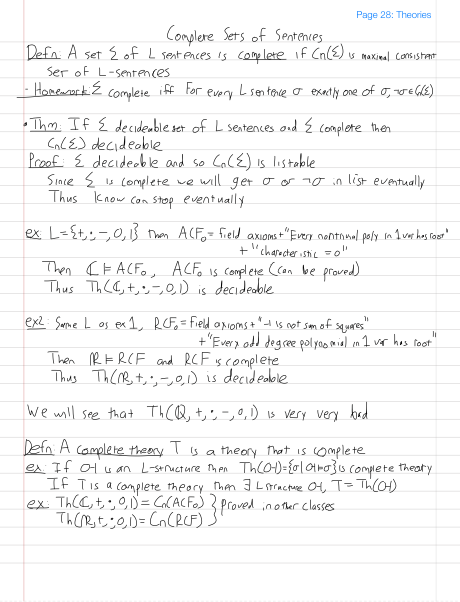 Page 28: Theories
Complete Sets of Sentences
Defn: A set Σ of L sentences is complete if Cn(Σ) is maximal consistent
set of L-sentences
- Homework Σ complete iff For every L sentence σ exactly one of σ, ¬σ ∈ Cn(Σ)
• Thm: If Σ decideable set of L sentences and Σ complete then
Cn(Σ) decideable
Proof: Σ decideable and so Cn(Σ) is listable
Since Σ is complete we will get σ or ¬σ in list eventually
Thus know can stop eventually
ex: L={+,·,-,0,1} then ACF₀ = field axioms + "Every nontrivial poly in 1 var has root"
+ "characteristic = 0"
Then ℂ ⊨ ACF₀, ACF₀ is complete (can be proved)
Thus Th(ℂ,+,·,-,0,1) is decideable
ex2: Same L as ex 1, RCF₀ = Field axioms + "-1 is not sum of squares"
+ "Every odd degree polynomial in 1 var has root"
Then ℝ ⊨ RCF and RCF is complete
Thus Th(ℝ,+,·,-,0,1) is decideable
We will see that Th(ℚ,+,·,-,0,1) is very very bad
Defn: A complete theory T is a theory that is complete
ex: If 𝔄 is an L-structure then Th(𝔄)={σ|𝔄⊨σ} is complete theory
If T is a complete theory then ∃ L structure 𝔄, T=Th(𝔄)
ex: Th(ℂ,+,·,0,1) = Cn(ACF₀) } proved in other classes
Th(ℝ,+,·,0,1) = Cn(RCF)